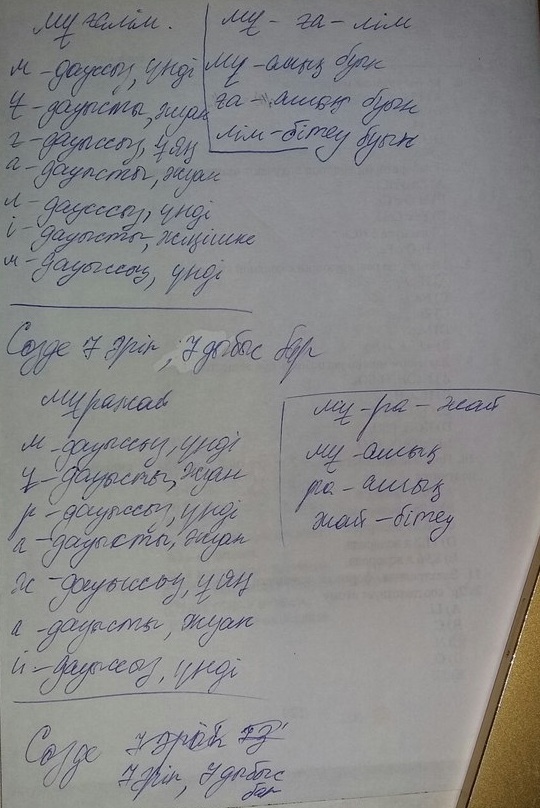 мұғалім.
м - дауссыз, үнді
ұ - дауысты, жуан
ғ - дауыссыз, ұяң
а - дауысты, жуан
л - дауссыз, үнді
і - дауысты, жіңішке
м - дауыссыз, үнді
мұ - ға - лім
мұ - ашық буын
ға - ашық буын
лім - бітеу буын
Сөзде 7 әріп, 7 дыбыс бар
мұражай
м - дауыссыз, үнді
ұ - дауысты, жуан
р - дауыссыз, үнді
а - дауысты, жуан
ж - дауыссыз, ұяң
а - дауысты, жуан
й - дауыссыз, үнді
мұ - ра - жай
мұ - ашық
ра - ашық
жай - бітеу
Сөзде
7 әріп, 7 дыбыс
бар